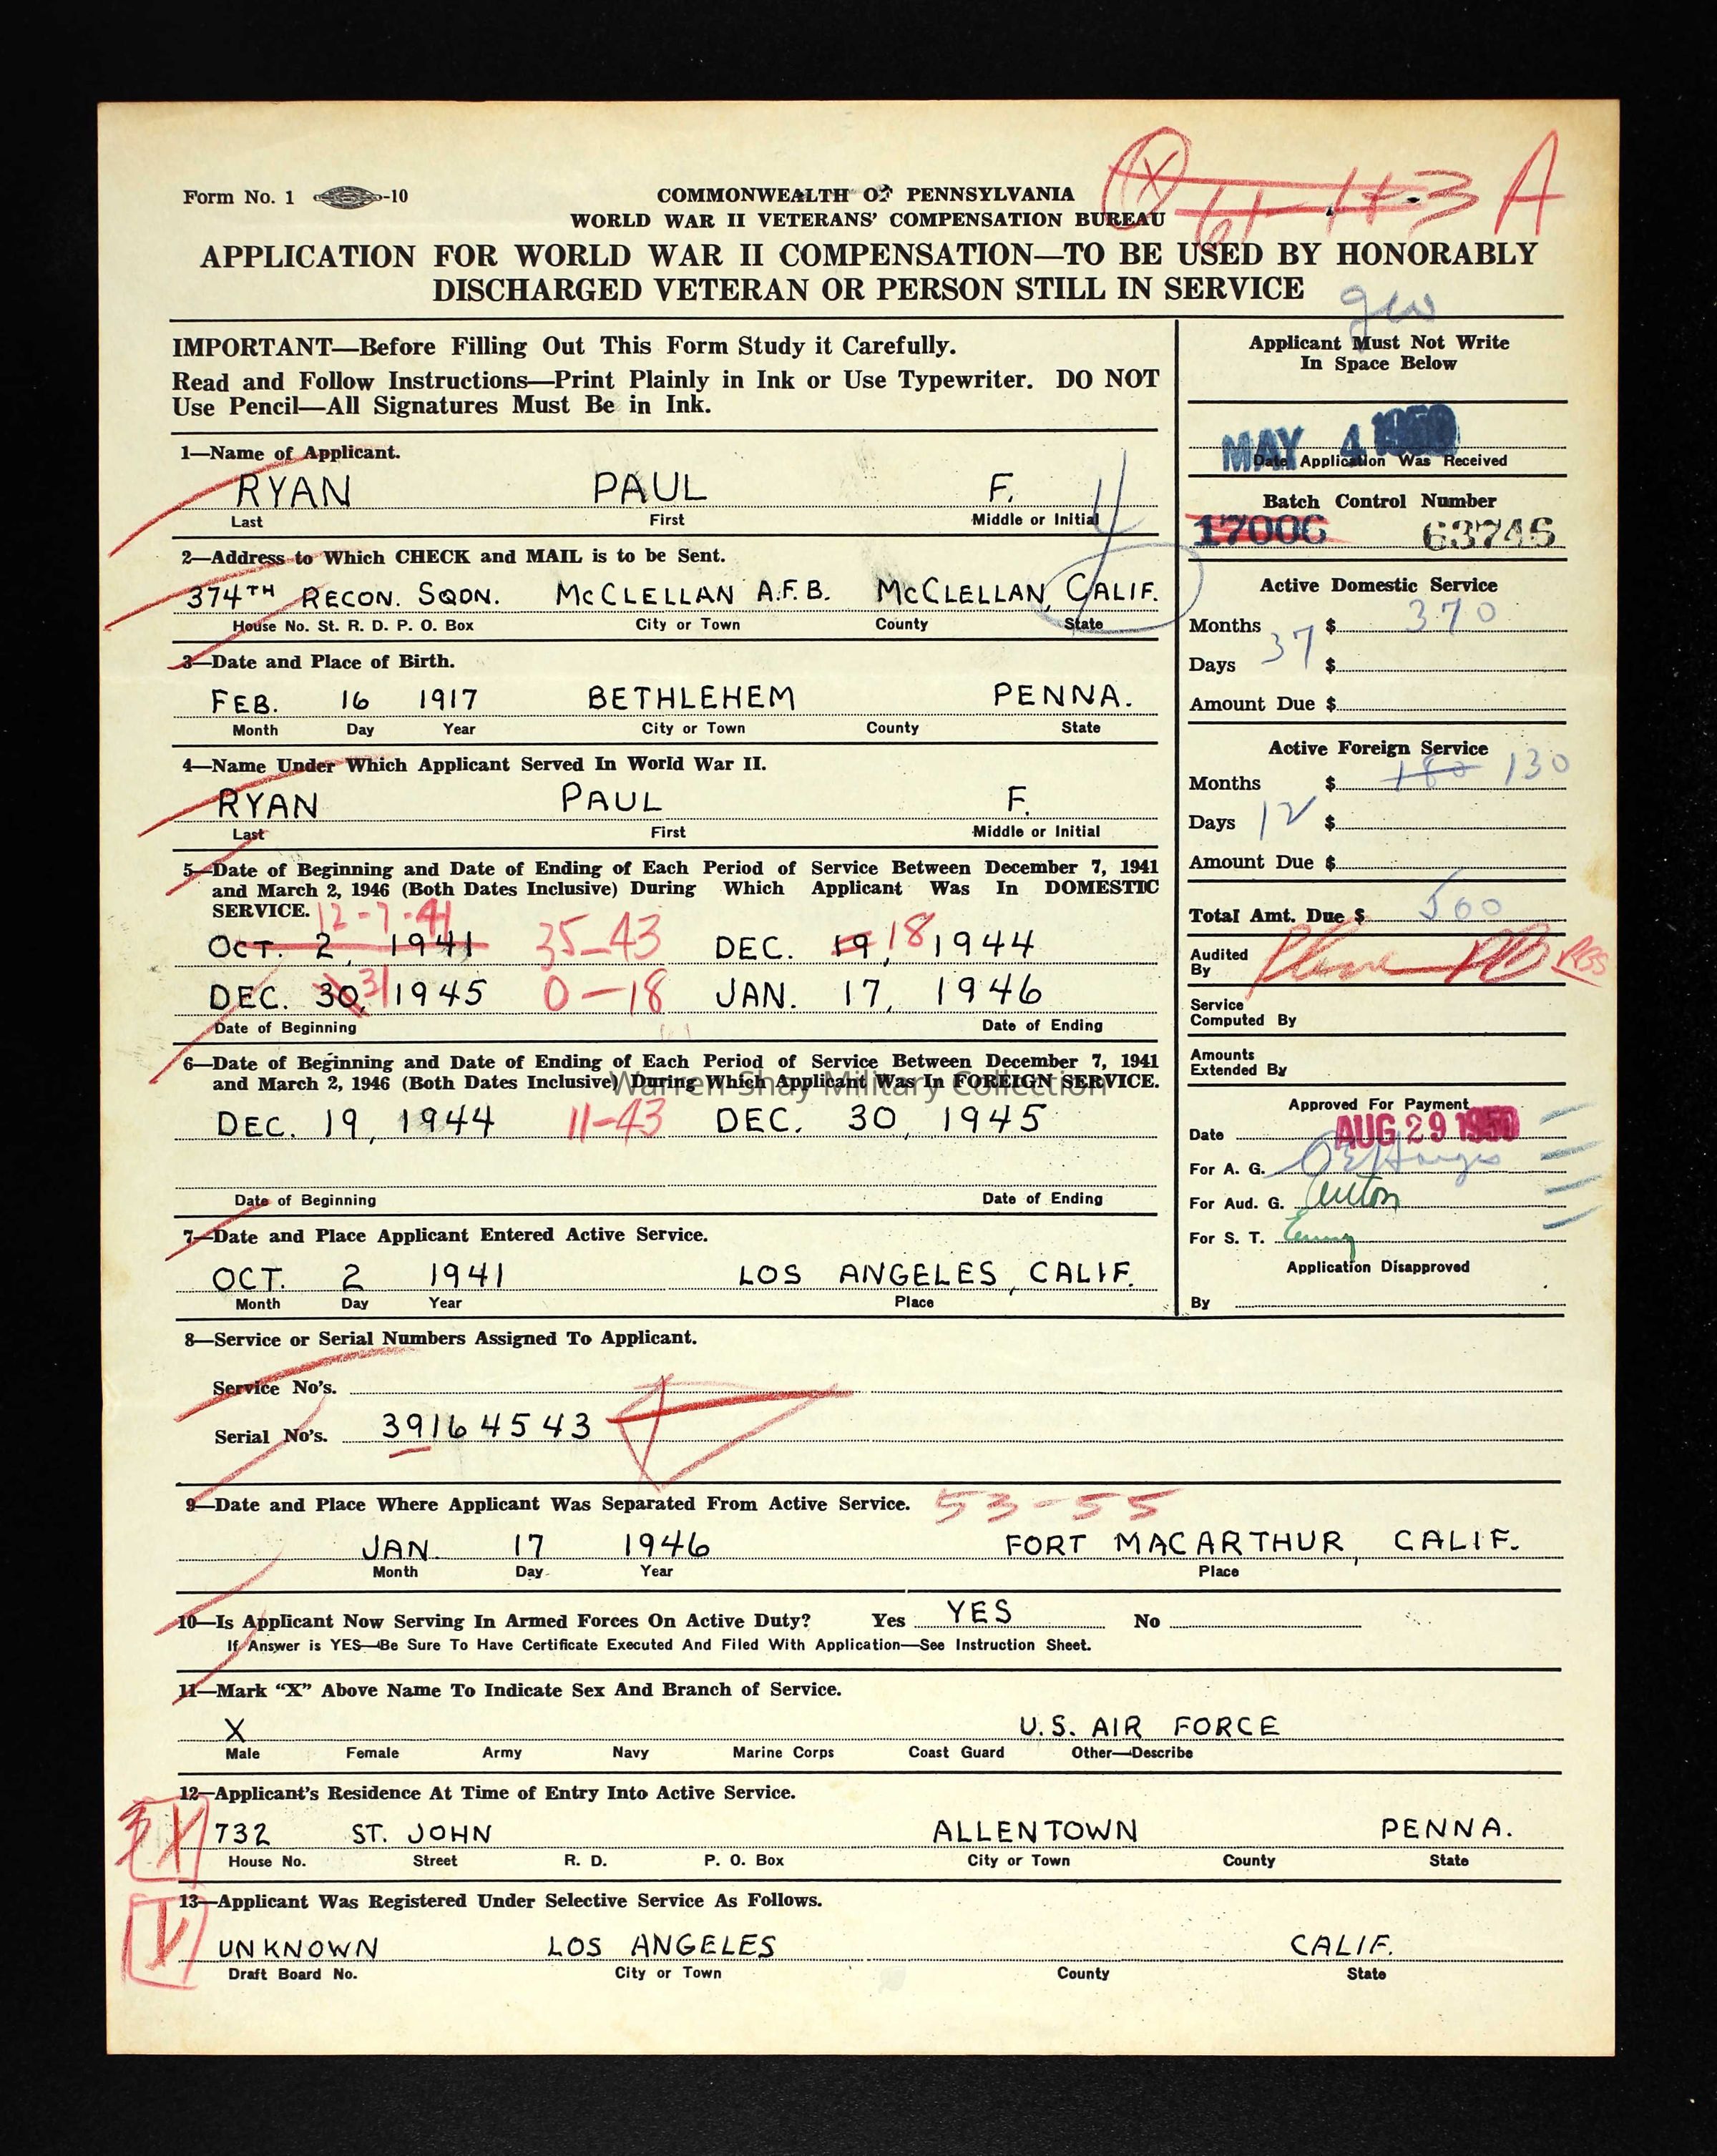 Form No. 1 -10
COMMONWEALTH OF PENNSYLVANIA
WORLD WAR II VETERANS' COMPENSATION BUREAU
61-113 A
APPLICATION FOR WORLD WAR II COMPENSATION—TO BE USED BY HONORABLY
DISCHARGED VETERAN OR PERSON STILL IN SERVICE
IMPORTANT—Before Filling Out This Form Study it Carefully.
Read and Follow Instructions—Print Plainly in Ink or Use Typewriter. DO NOT
Use Pencil—All Signatures Must Be in Ink.
1—Name of Applicant.
RYAN PAUL F.
Last First Middle or Initial
2—Address to Which CHECK and MAIL is to be Sent.
374TH RECON. SQDN. McCLELLAN A.F.B. McCLELLAN, CALIF.
House No. St. R. D. P. O. Box City or Town County State
3—Date and Place of Birth.
FEB. 16 1917 BETHLEHEM PENNA.
Month Day Year City or Town County State
4—Name Under Which Applicant Served In World War II.
RYAN PAUL F.
Last First Middle or Initial
5—Date of Beginning and Date of Ending of Each Period of Service Between December 7, 1941
and March 2, 1946 (Both Dates Inclusive) During Which Applicant Was In DOMESTIC
SERVICE. 12-7-41
OCT. 2, 1941 35-43 DEC. 19, 18 1944
DEC. 30, 31 1945 0-18 JAN. 17, 1946
Date of Beginning Date of Ending
6—Date of Beginning and Date of Ending of Each Period of Service Between December 7, 1941
and March 2, 1946 (Both Dates Inclusive) During Which Applicant Was In FOREIGN SERVICE.
Warren Shay Military Collection
DEC. 19, 1944 11-43 DEC. 30, 1945
Date of Beginning Date of Ending
7—Date and Place Applicant Entered Active Service.
OCT. 2 1941 LOS ANGELES, CALIF.
Month Day Year Place
Applicant Must Not Write
In Space Below
MAY 4 1950
Date Application Was Received
Batch Control Number
17006 63746
Active Domestic Service
Months $ 370
37
Days $
Amount Due $
Active Foreign Service
Months $ 130
Days 12 $
Amount Due $
Total Amt. Due $ 500
Audited
By
Service
Computed By
Amounts
Extended By
Approved For Payment
Date AUG 29 1950
For A. G.
For Aud. G.
For S. T.
Application Disapproved
By
8—Service or Serial Numbers Assigned To Applicant.
Service No's.
Serial No's. 39164543
9—Date and Place Where Applicant Was Separated From Active Service. 53-55
JAN. 17 1946 FORT MACARTHUR, CALIF.
Month Day Year Place
10—Is Applicant Now Serving In Armed Forces On Active Duty? Yes YES No
If Answer is YES—Be Sure To Have Certificate Executed And Filed With Application—See Instruction Sheet.
11—Mark "X" Above Name To Indicate Sex And Branch of Service.
X U.S. AIR FORCE
Male Female Army Navy Marine Corps Coast Guard Other—Describe
12—Applicant's Residence At Time of Entry Into Active Service.
732 ST. JOHN ALLENTOWN PENNA.
House No. Street R. D. P. O. Box City or Town County State
13—Applicant Was Registered Under Selective Service As Follows.
UNKNOWN LOS ANGELES CALIF.
Draft Board No. City or Town County State